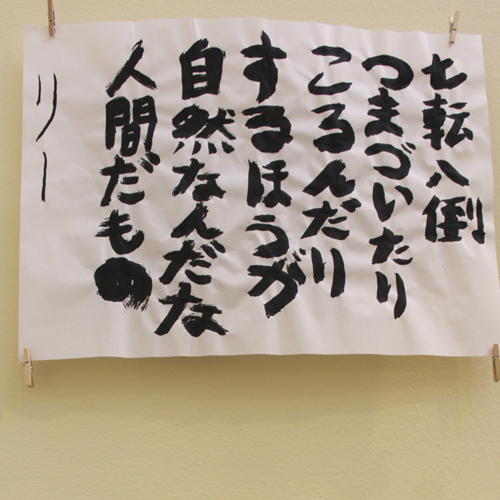 七転八倒
つまづいたり
ころんだり
するほうが
自然なんだな
人間だもの
リー